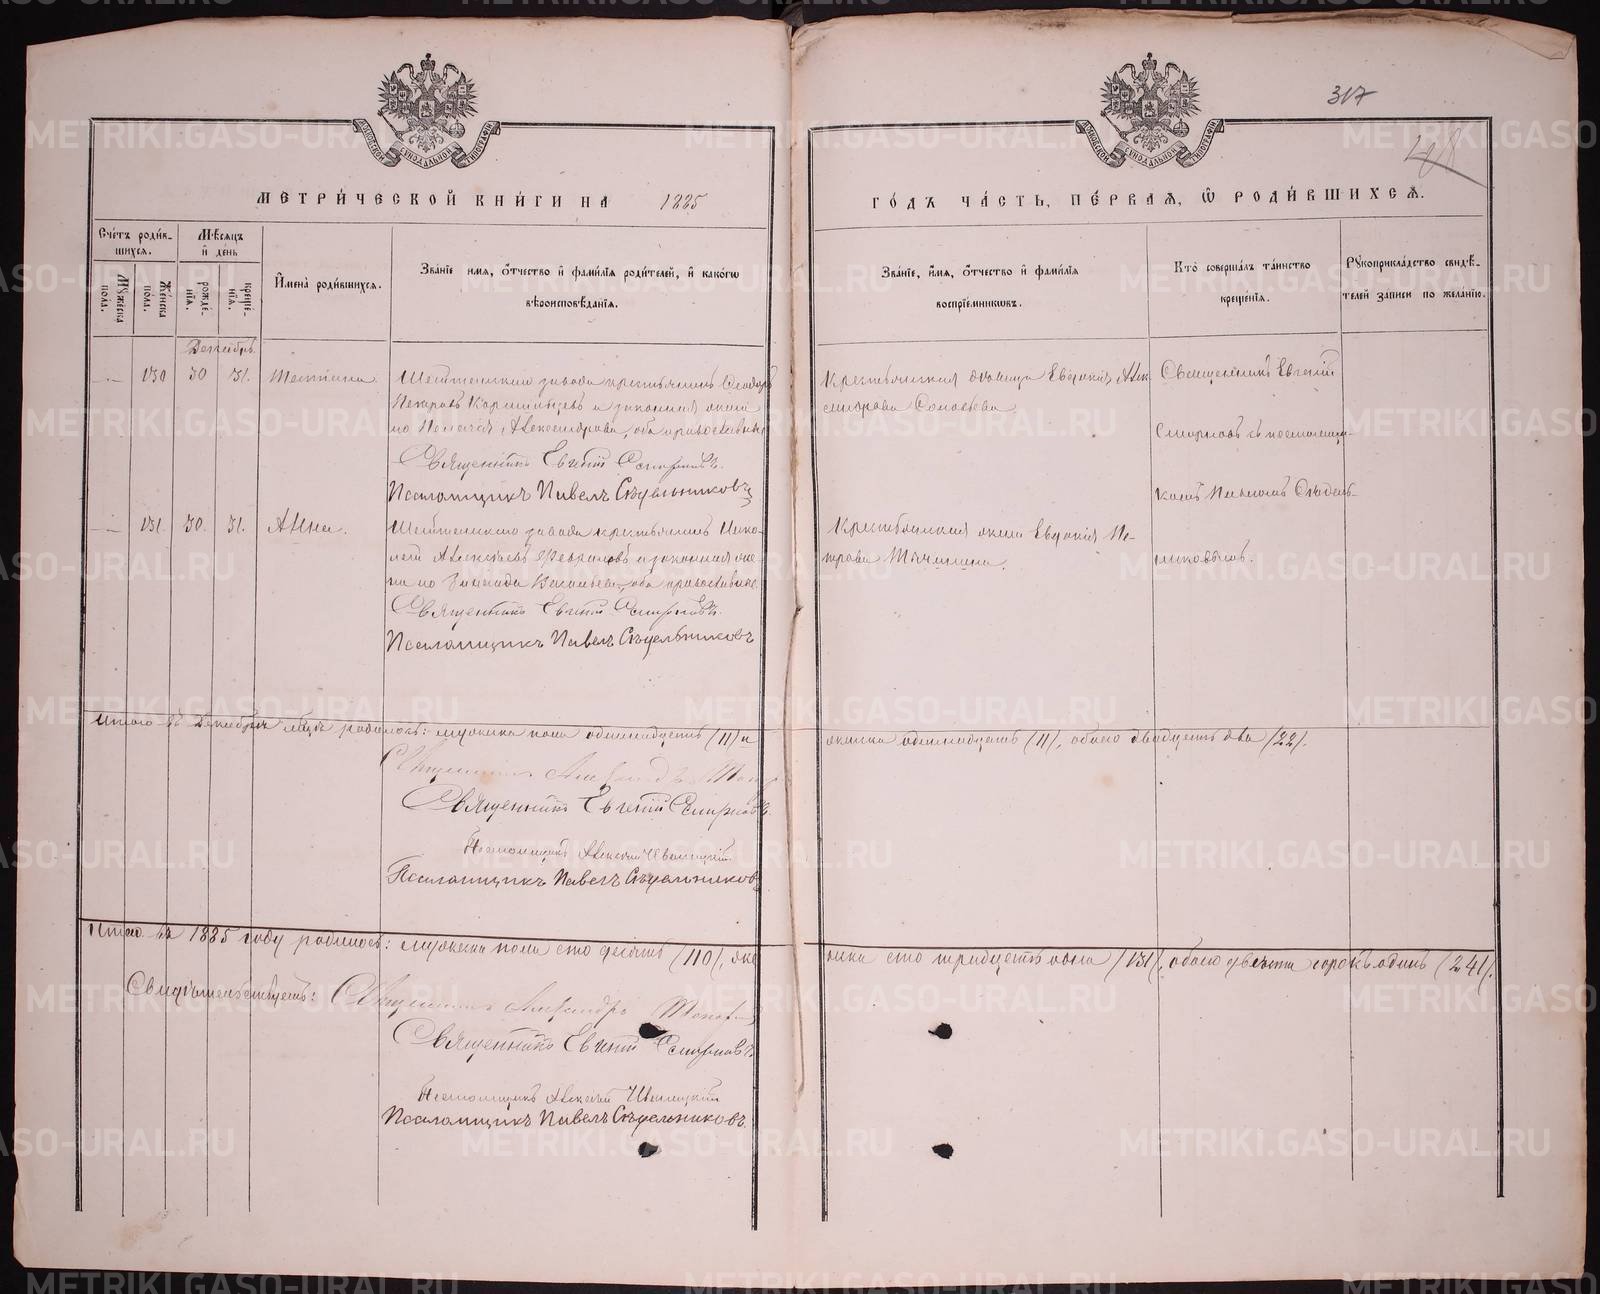 317
МЕТРИЧЕСКОЙ КНИГИ НА 1885
ГОДЪ ЧАСТЬ, ПЕРВАЯ, Ѿ РОДИВШИХСЯ.
Счетъ родив-
шихся.
Мужеска пола.
Женска пола.
Мѣсяцъ и день
рожде-
нія.
креще-
нія.
Имена родившихся.
Званіе имя, отчество и фамилія родителей, и какогω
вѣроисповѣданія.
Званіе, имя, отчество и фамилія
воспріемникωвъ.
Кто совершалъ таинство
крещенія.
Рукоприкладство свидѣ-
телей записи по желанію.
Декабрь
130 30 31. Татіана
завода крестьянинъ Ѳеодоръ
и законная жена
Александрова, оба православные
Священникъ Евгеній Смирновъ.
Псаломщикъ Павелъ Сѣдельниковъ
Крестьянская Евдокія Алек
Соловьева.
Священникъ Евгеній
Смирновъ съ псаломщи-
комъ Павломъ Сѣдель-
никовымъ.
131. 30. 31. Анна.
завода крестьянинъ Нико-
лай Алексѣевъ и законная же-
на его Зинаида Васильева, оба православные
Священникъ Евгеній Смирновъ.
Псаломщикъ Павелъ Сѣдельниковъ
Крестьянская жена Евдокія Пе-
трова
Итого въ Декабрѣ м҃цѣ родилось: мужеска пола одиннадцать (11) и
женска одиннадцать (11), обоего двадцать два (22).
Священникъ Александръ
Священникъ Евгеній Смирновъ.
Псаломщикъ Алексѣй
Псаломщикъ Павелъ Сѣдельниковъ
Итого въ 1885 году родилось: мужеска пола сто десять (110), жен
ска сто тридцать одна (131), обоего двѣсти сорокъ одинъ (241).
Свидѣтельствуемъ: Священникъ Александръ
Священникъ Евгеній Смирновъ.
Псаломщикъ Алексѣй
Псаломщикъ Павелъ Сѣдельниковъ.
METRIKI.GASO-URAL.RU